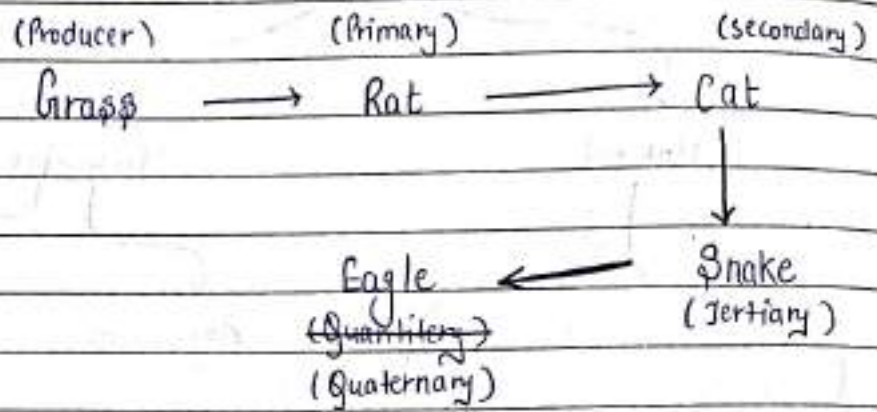 (Producer) (Primary) (secondary)
Grass → Rat → Cat
↓
Eagle ← Snake
(Quantitery) (Tertiary)
(Quaternary)